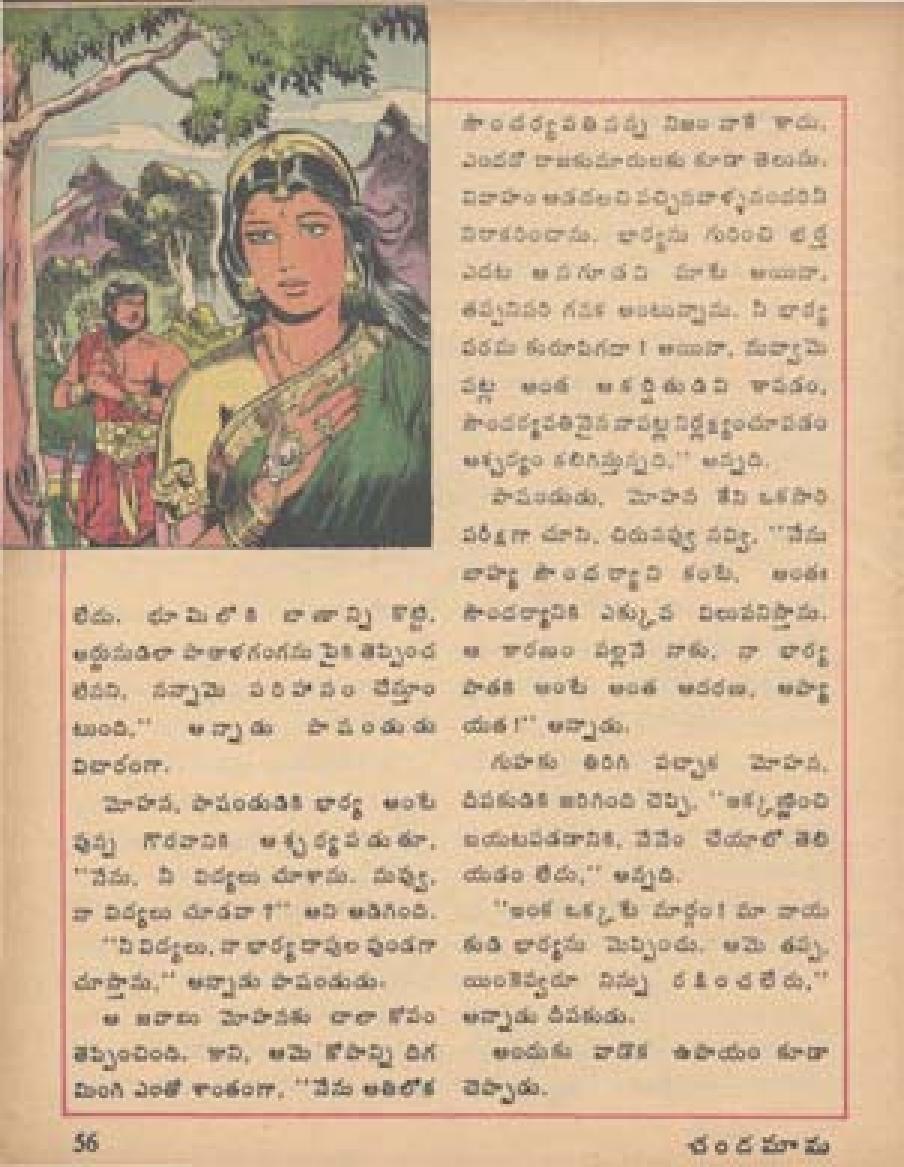 లేదు. భూమిలోకి బాణాన్ని కొట్టి,
అర్జునుడిలా పాతాళగంగను పైకి తెప్పించ
లేనని, నన్నామె పరిహాసం చేస్తూం
టుంది,'' అన్నాడు పాషండుడు
విచారంగా.
మోహన, పాషండుడికి భార్య అంటే
వున్న గౌరవానికి ఆశ్చర్యపడుతూ,
''నేను, నీ విద్యలు చూశాను. నువ్వు,
నా విద్యలు చూడవా ?'' అని అడిగింది.
''నీ విద్యలు, నా భార్య రాపుల వుండగా
చూస్తాను,'' అన్నాడు పాషండుడు.
ఆ జవాబు మోహనకు చాలా కోపం
తెప్పించింది. కాని, ఆమె కోపాన్ని దిగ
మింగి ఎంతో శాంతంగా, ''నేను అతిలోక
సౌందర్యవతినన్న నిజం నాకే కాదు,
ఎందరో రాజకుమారులకు కూడా తెలుసు.
వివాహం ఆడదలచి వచ్చినవాళ్ళనందరినీ
నిరాకరించాను. భార్యను గురించి భర్త
ఎదట అనగూడని మాటే అయినా,
తప్పనిసరి గనక అంటున్నాను. నీ భార్య
పరమ కురూపిగదా ! అయినా, నువ్వామె
పట్ల అంత ఆకర్షితుడివి కావడం,
సౌందర్యవతినైన నాపట్ల నిర్లక్ష్యంచూపడం
ఆశ్చర్యం కలిగిస్తున్నది,'' అన్నది.
పాషండుడు, మోహన కేసి ఒకసారి
పరీక్షగా చూసి, చిరునవ్వు నవ్వి, ''నేను
బాహ్య సౌందర్యాని కంటే, అంతః
సౌందర్యానికి ఎక్కువ విలువనిస్తాను.
ఆ కారణం వల్లనే నాకు, నా భార్య
పాతకి అంటే అంత ఆదరణ, ఆప్యా
యత !'' అన్నాడు.
గుహకు తిరిగి వచ్చాక మోహన,
దీపకుడికి జరిగింది చెప్పి, ''ఇక్కణ్ణించి
బయటపడడానికి, నేనేం చేయాలో తెలి
యడం లేదు,'' అన్నది.
''ఇంక ఒక్కటే మార్గం ! మా నాయ
కుడి భార్యను మెప్పించు. ఆమె తప్ప,
యింకెవ్వరూ నిన్ను రక్షించలేరు,''
అన్నాడు దీపకుడు.
అందుకు వాడొక ఉపాయం కూడా
చెప్పాడు.
56
చందమామ